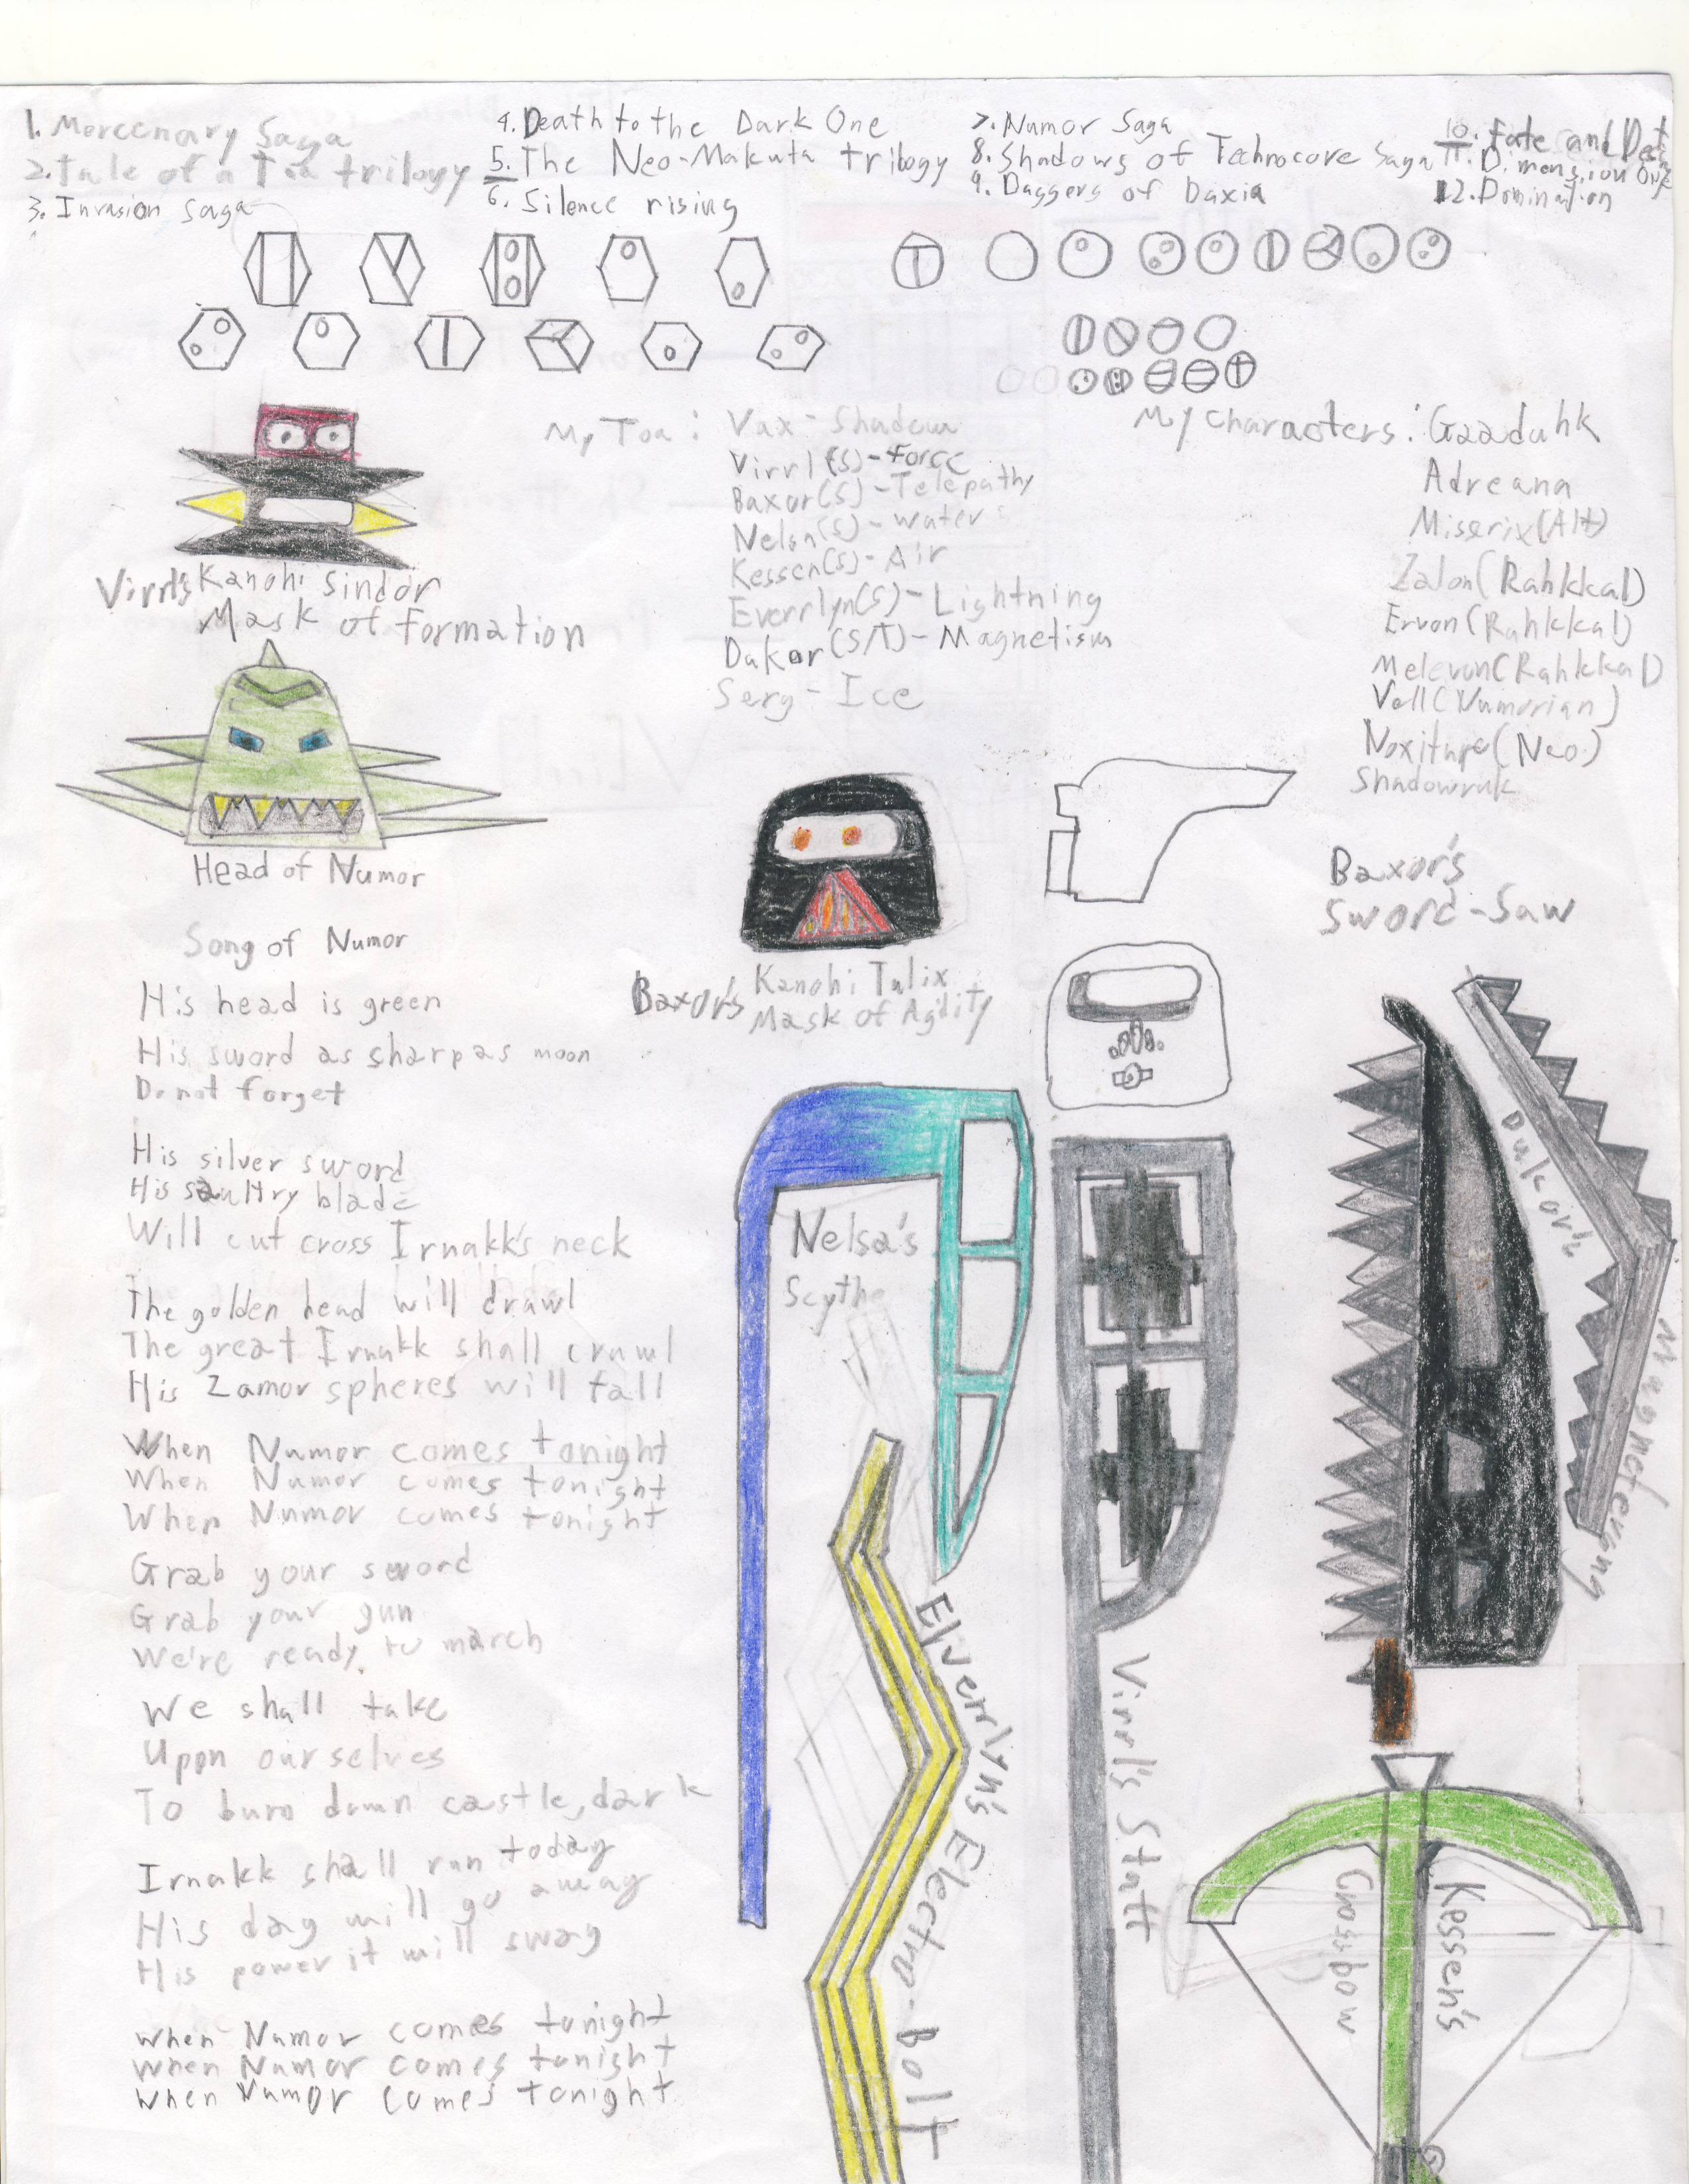 1. Mercenary Saga
2. Tale of a Toa trilogy
3. Invasion Saga
4. Death to the Dark One
5. The Neo-Makuta trilogy
6. Silence rising
7. Numor Saga
8. Shadows of Technocore Saga
9. Daggers of Daxia
10. Fate and
11. Dimension One
12. Domination
My Toa: Vax - Shadow
Virrl(S) - Force
Baxor(S) - Telepathy
Nelsn(S) - water
Kessen(S) - Air
Everrlyn(S) - Lightning
Dakor(S/T) - Magnetism
Serg - Ice
My characters: Gaaduhk
Adreana
Miserix(Alt)
Zalon(Rahkkal)
Ervon(Rahkkal)
Melevon(Rahkkal)
Vell(Numorian)
Noxitupe(Neo)
Shadowruk
Virrl's Kanohi Sindor
Mask of Formation
Head of Numor
Song of Numor
His head is green
His sword as sharp as moon
Do not forget
His silver sword
His saultry blade
Will cut cross Irnakk's neck
The golden head will drawl
The great Irnakk shall crawl
His Zamor spheres will fall
When Numor comes tonight
When Numor comes tonight
When Numor comes tonight
Grab your sword
Grab your gun
We're ready to march
We shall take
Upon ourselves
To burn down castle, dark
Irnakk shall run today
His day will go away
His power it will sway
When Numor comes tonight
When Numor comes tonight
When Numor comes tonight
Baxor's Kanohi Tulix
Mask of Agility
Baxor's
Sword-Saw
Nelsa's
Scythe
Dukor's
Magneterang
Everrlyn's Electro-Bolt
Virrl's Staff
Kessen's
Crossbow